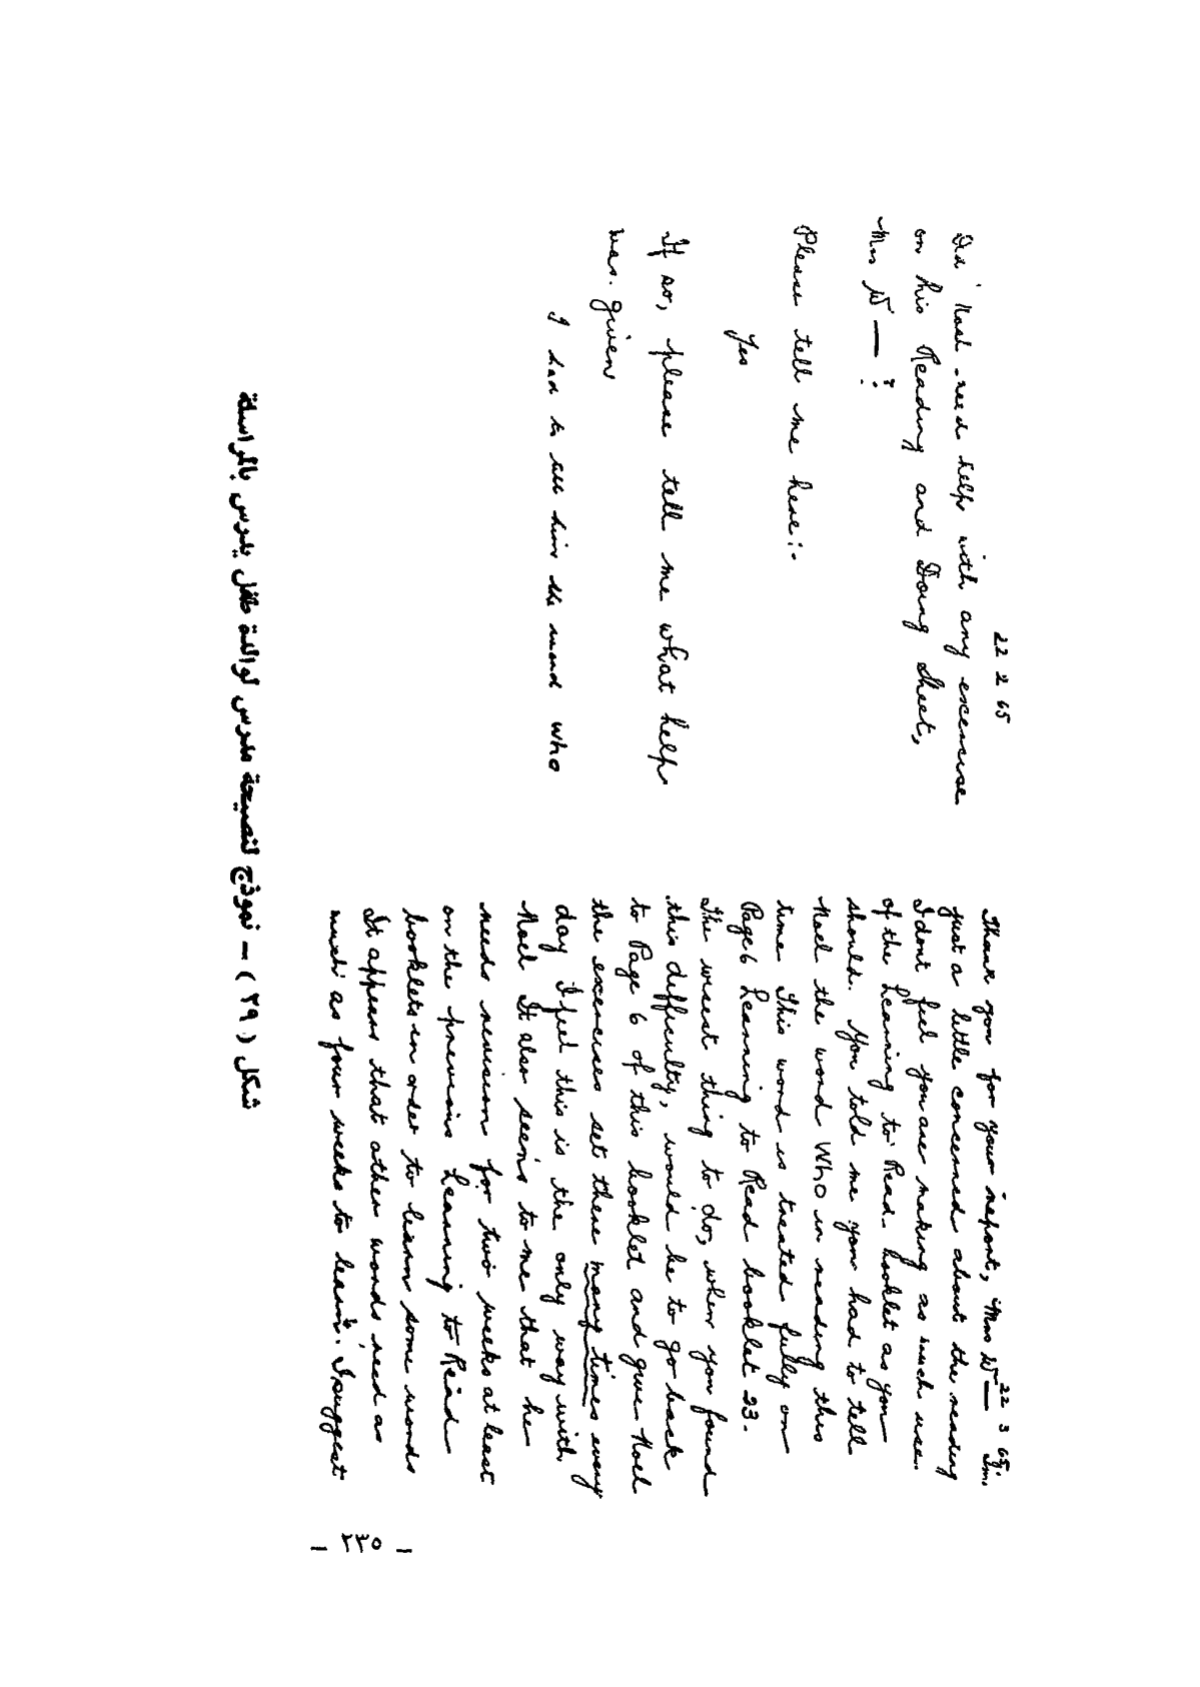 22 2 65
Did Noel need help with any excercise
on his Reading and Doing Sheet,
Mrs W— ?
Please tell me here:-
Yes
If so, please tell me what help
was. given
I had to tell him the word who
22 3 65.
Thank you for your report, Mrs W—
just a little concerned about the reading
I dont feel you are making as much use
of the Learning to Read booklet as you
should. You told me you had to tell
Noel the word Who in reading this
time This word is treated fully on
Page 6 Learning to Read booklet 23.
The wisest thing to do, when you found
this difficulty, would be to go back
to Page 6 of this booklet and give Noel
the excercises set there many times every
day I feel this is the only way with
Noel It also seems to me that he
needs revision for two weeks at least
on the previous Learning to Read
booklets in order to learn some words
It appears that other words need as
much as four weeks to learn. I suggest
شكل (٢٩) – نموذج لنصيحة مدرس لوالدة طفل يدرس بالمراسلة
– ٢٣٥ –